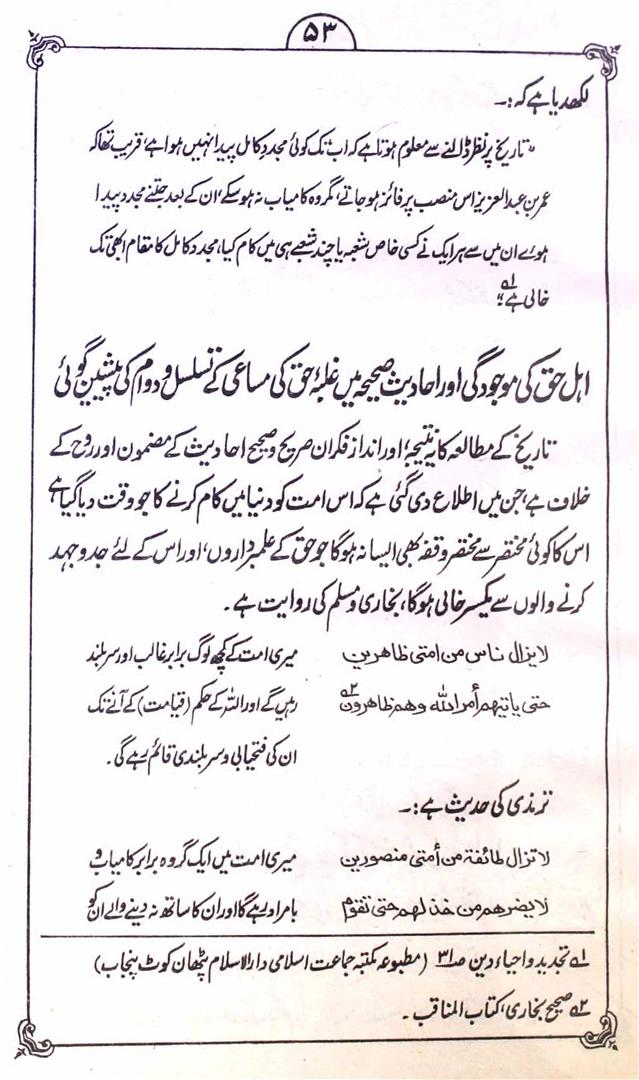 ۵۳
لکھدیا ہے کہ :۔
" تاریخ پر نظر ڈالنے سے معلوم ہوتا ہے کہ اب تک کوئی مجدد کامل پیدا نہیں ہوا ہے، قریب تھا کہ
عمر بن عبدالعزیز اس منصب پر فائز ہو جاتے، مگر وہ کامیاب نہ ہو سکے، ان کے بعد جتنے مجدد پیدا
ہوئے ان میں سے ہر ایک نے کسی خاص شعبہ یا چند شعبے ہی میں کام کیا، مجدد کامل کا مقام ابھی تک
خالی ہے" ۱؎
اہل حق کی موجودگی اور احادیث صحیحہ میں غلبۂ حق کی مساعی کے تسلسل و دوام کی پیشین گوئی
تاریخ کے مطالعہ کا یہ نتیجہ، اور انداز فکر ان صریح و صحیح احادیث کے مضمون اور روح کے
خلاف ہے، جن میں اطلاع دی گئی ہے کہ اس امت کو دنیا میں کام کرنے کا جو وقت دیا گیا ہے
اس کا کوئی مختصر سے مختصر وقفہ بھی ایسا نہ ہوگا جو حق کے علمبرداروں، اور اس کے لئے جدوجہد
کرنے والوں سے یکسر خالی ہوگا، بخاری و مسلم کی روایت ہے۔
لا یزال ناس من امتی ظاهرین میری امت کے کچھ لوگ برابر غالب اور سربلند
حتی یاتیهم أمر الله وهم ظاهرون ۲؎ رہیں گے اور اللہ کے حکم (قیامت) کے آنے تک
ان کی فتحیابی و سربلندی قائم رہے گی۔
ترمذی کی حدیث ہے :۔
لا تزال طائفة من أمتی منصورین میری امت میں ایک گروہ برابر کامیاب و
لا یضرهم من خذلهم حتی تقوم بامراد رہے گا اور ان کا ساتھ نہ دینے والے ان کو
۱؎ تجدید و احیاء دین ص۳۱ (مطبوعہ مکتبہ جماعت اسلامی دارالاسلام پٹھان کوٹ پنجاب)
۲؎ صحیح بخاری، کتاب المناقب ۔